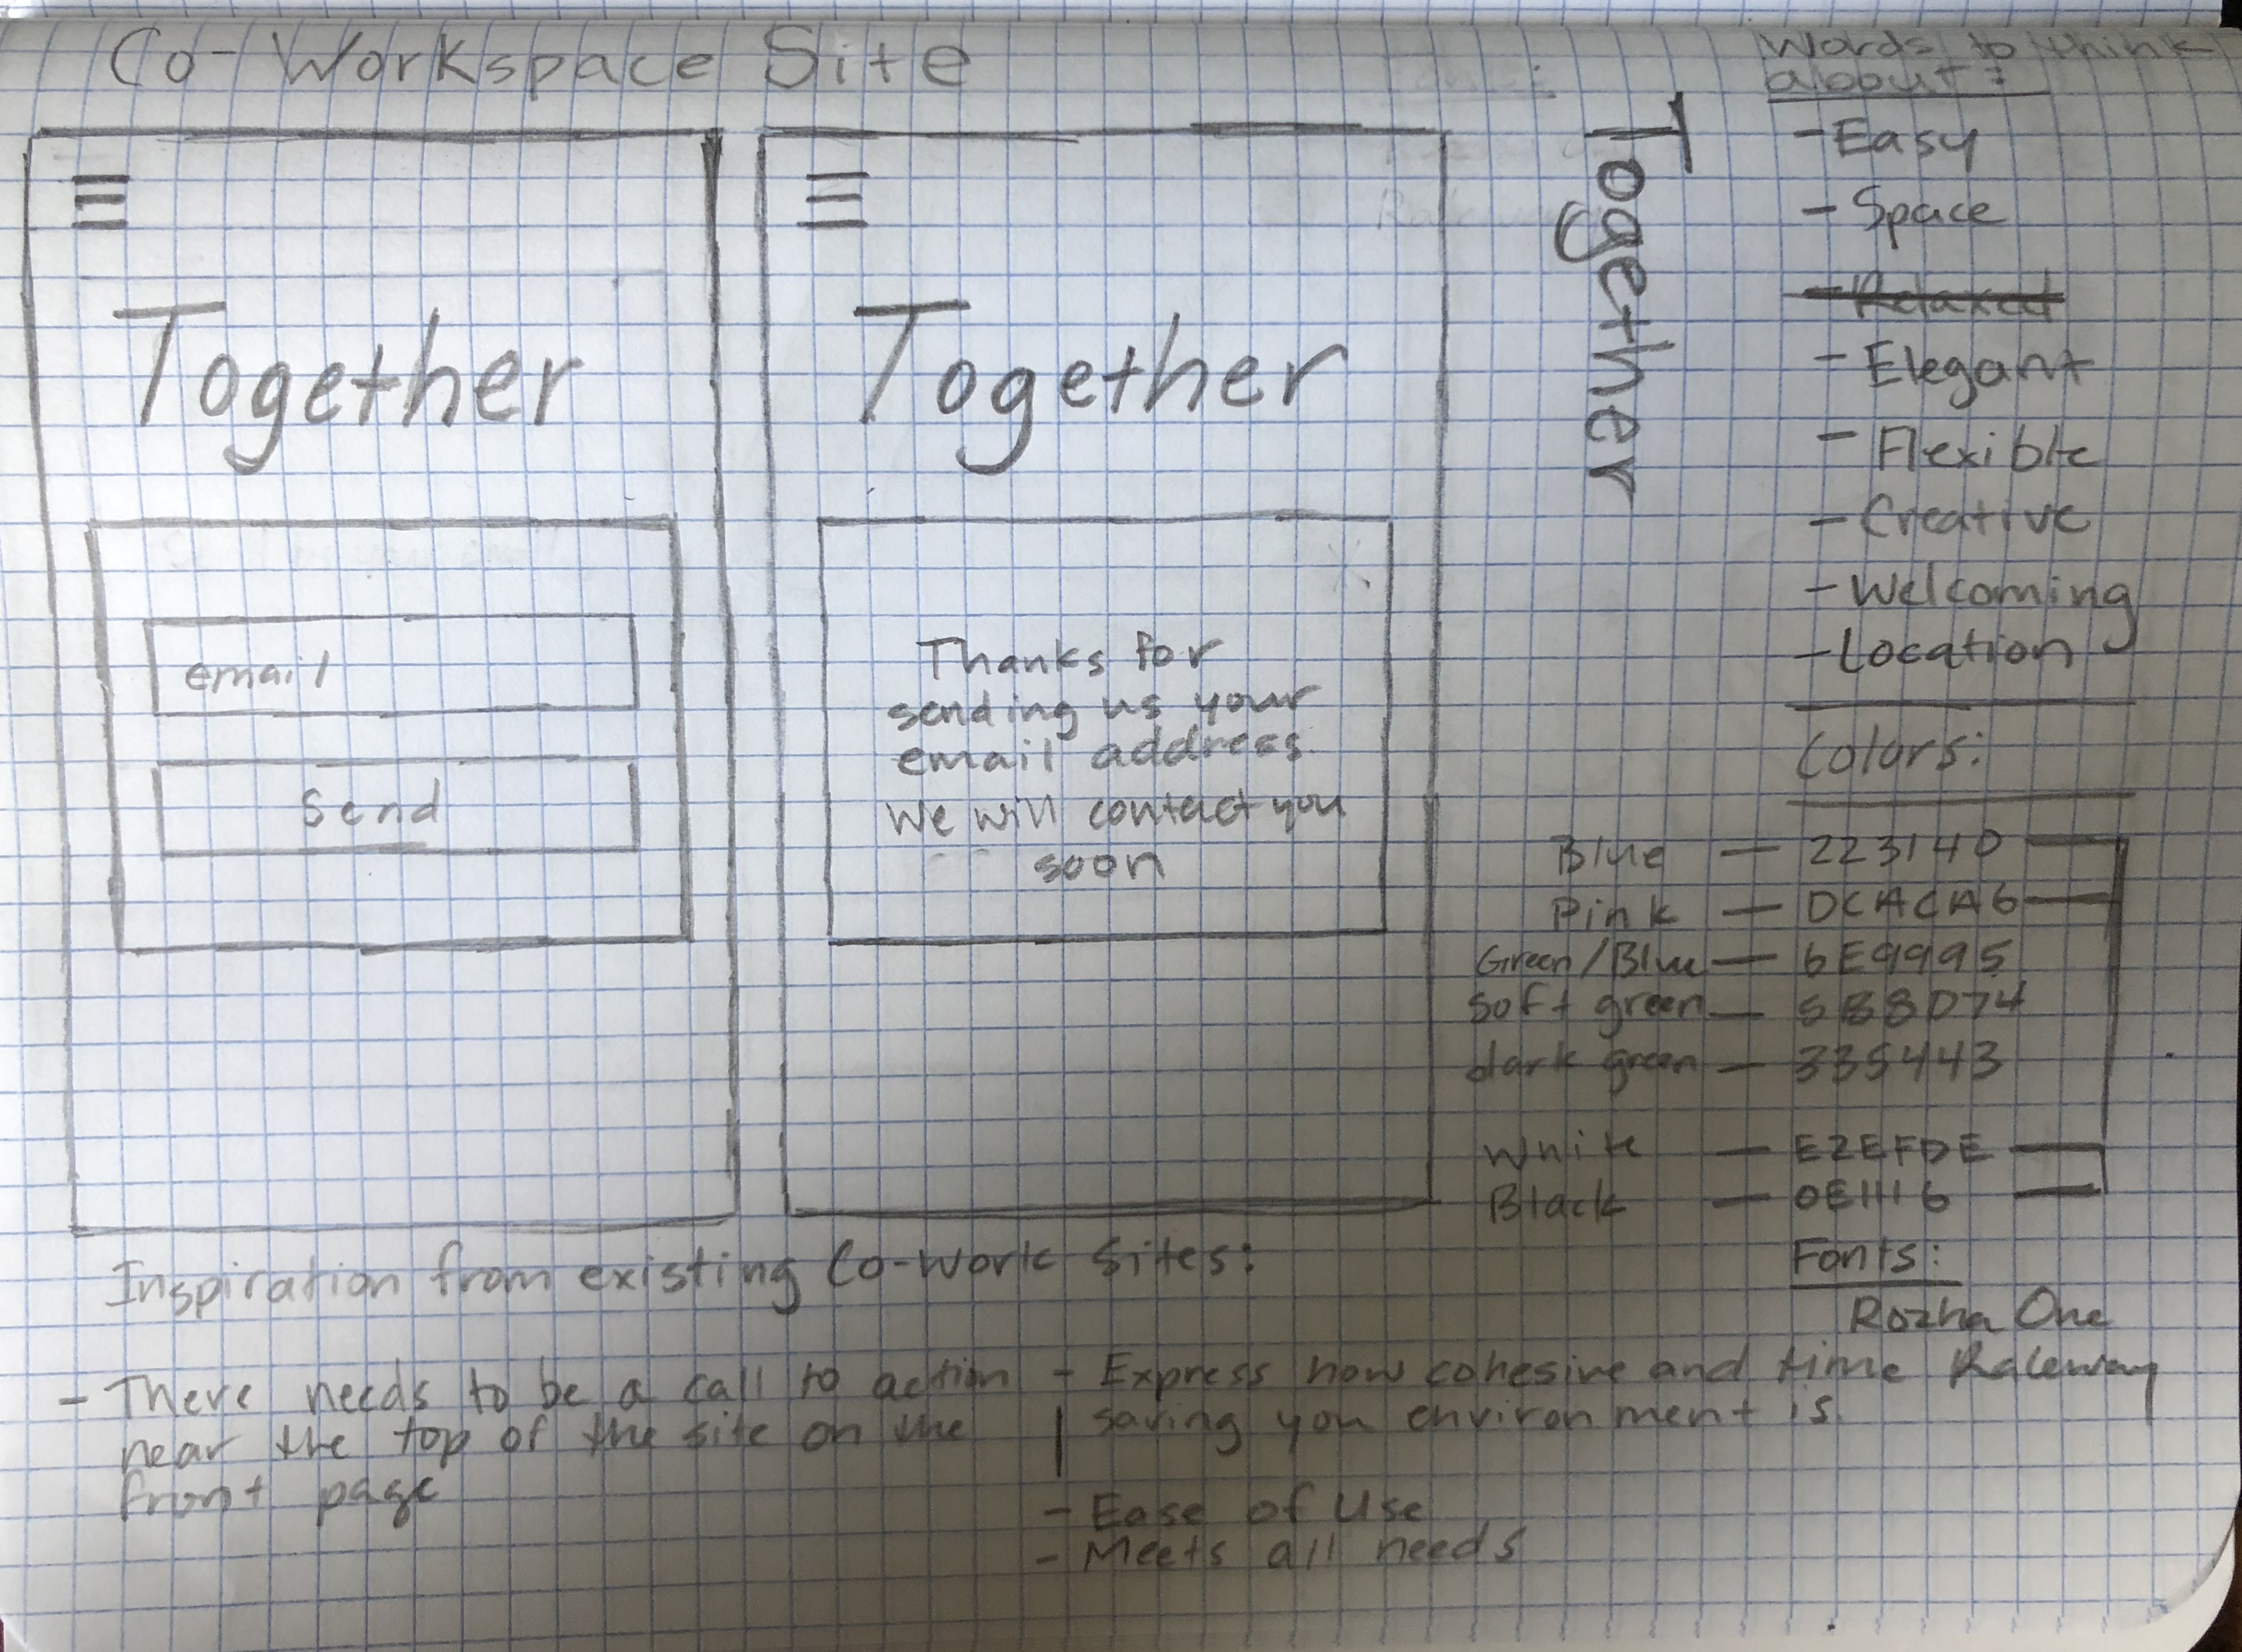 Co-Workspace Site
Together
email
Send
Together
Thanks for
sending us your
email address.
We will contact you
soon
Together
Words to think
about:
- Easy
- Space
- Relaxed
- Elegant
- Flexible
- Creative
- Welcoming
- Location
Colors:
Blue — 223140
Pink — DCACA6
Green/Blue — 6E9995
soft green — 5B8D74
dark green — 335443
White — E2EFDE
Black — 0E1116
Fonts:
Rozha One
Raleway
Inspiration from existing Co-Work Sites:
- There needs to be a call to action
near the top of the site on the
front page
- Express how cohesive and time
saving you environment is.
- Ease of Use
- Meets all needs